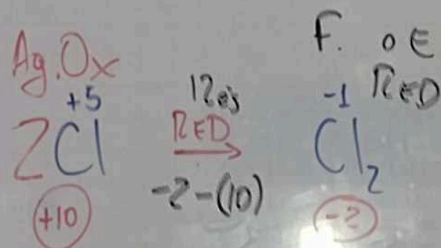 Ag. Ox F. o E
+5 12 e's -1 RED
2Cl RED Cl₂
+10 -2-(10) -2